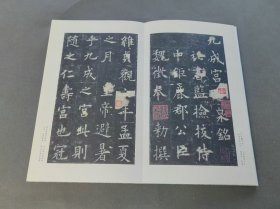 九成宮泉銘
書監檢挍侍
中鉅鹿郡公臣
魏徵奉勅撰
維貞觀六年孟夏
之月皇帝避暑
乎九成之宮此則
隨之仁壽宮也冠